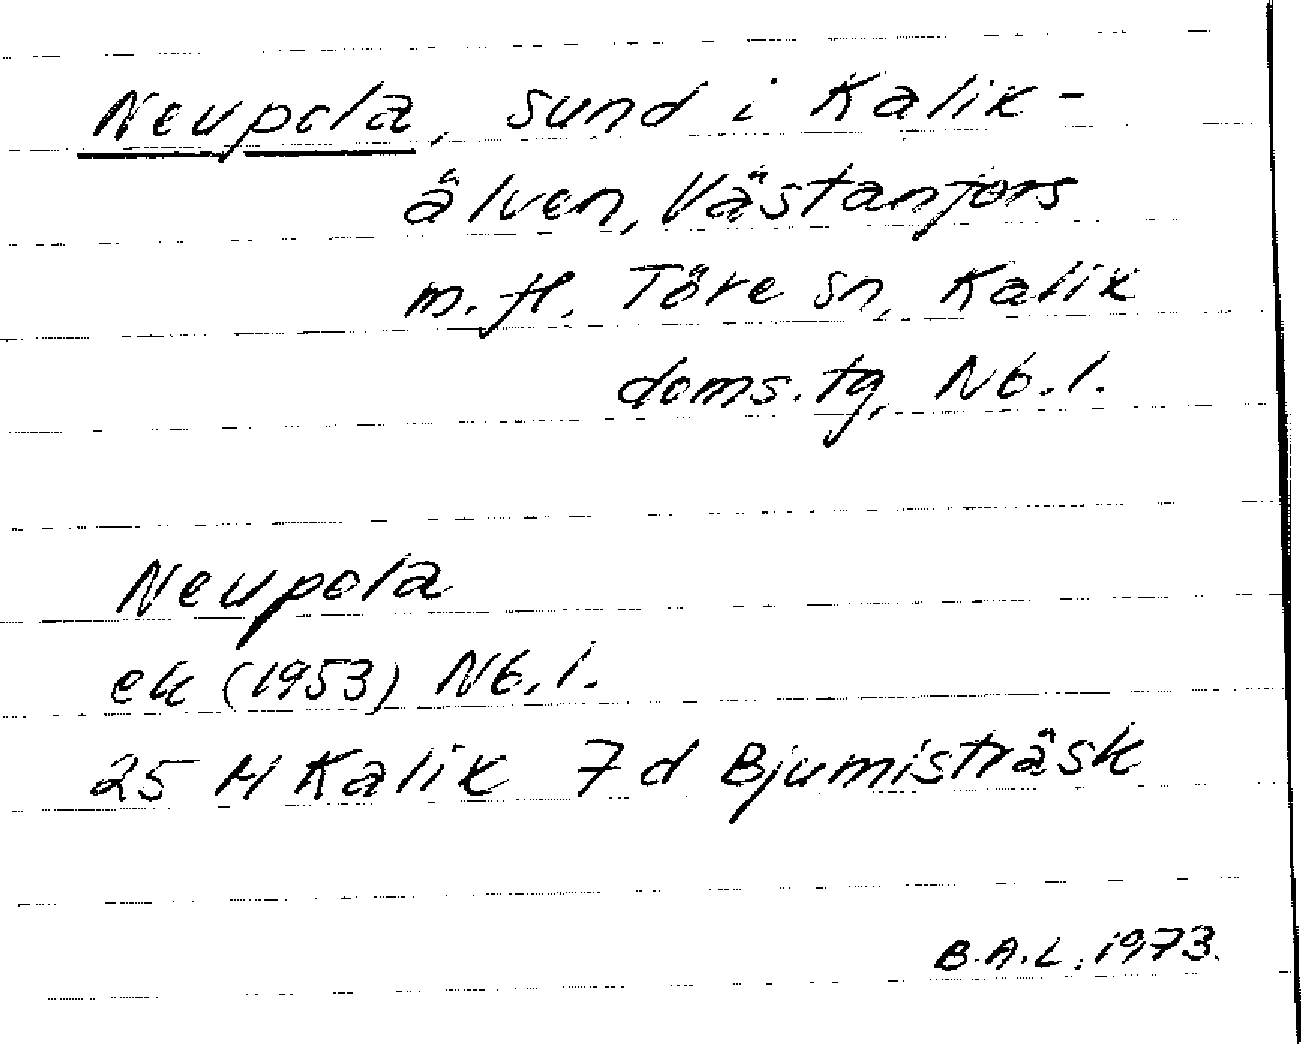 Neupola, sund i Kalix-
älven, Västanfors
m. fl. Töre sn, Kalix
doms. tg, Nb. l.
Neupola
ek (1953) Nb. l.
25 M Kalix 7 d Bjumisträsk
B. A. L. 1973.